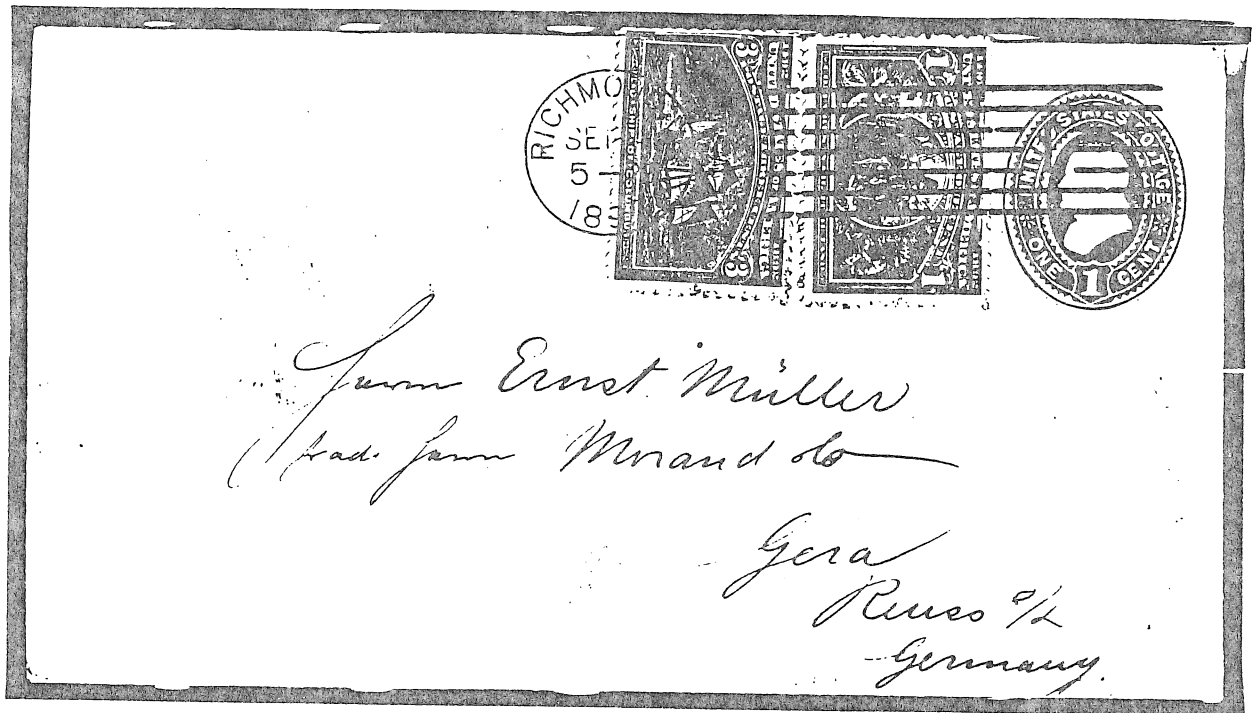 RICHMO
SEP
5-
18
3 3
1 1
UNITED STATES POSTAGE
ONE 1 CENT
Herrn Ernst Müller
Herrn Morand & Co
Gera
Reuss a/L
Germany.